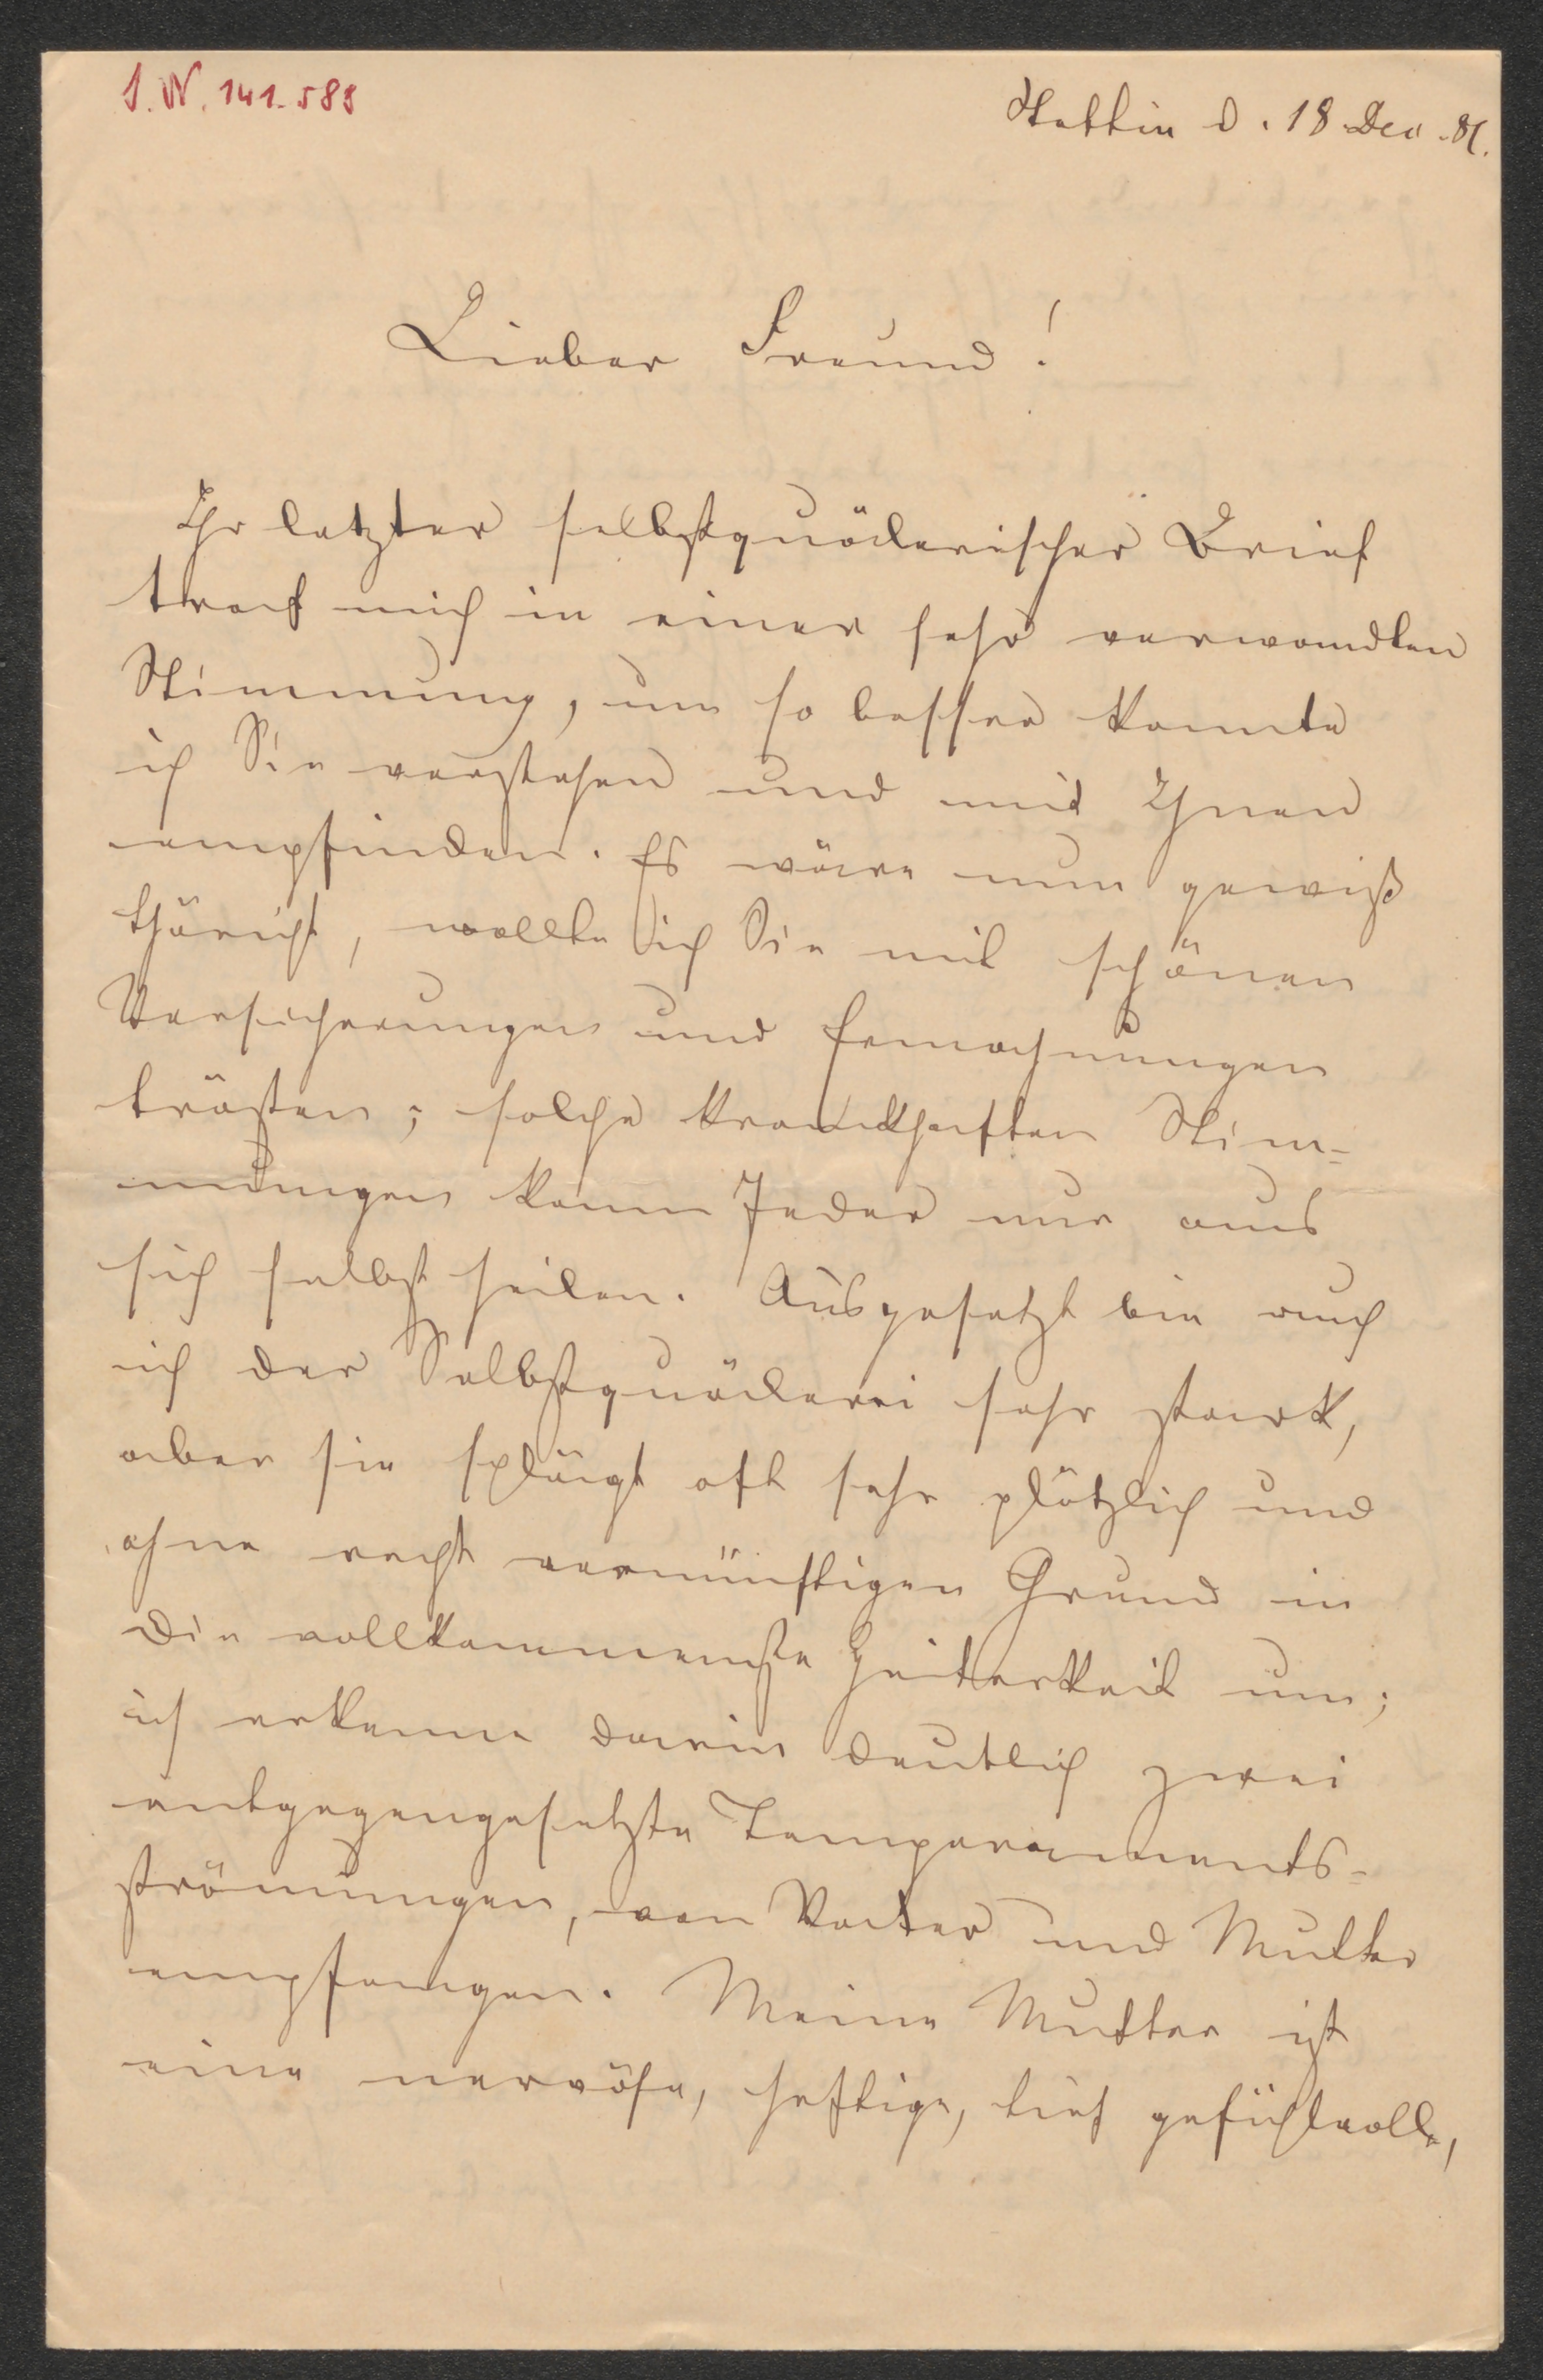 I. N. 141.588
Stettin d. 18. Dec. 81.
Lieber Freund!
Ihr letzter selbstquälerischer Brief
traf mich in einer sehr verwandten
Stimmung, um so besser konnte
ich Sie verstehen und mit Ihnen
empfinden. Es wäre nun gewiß
thöricht, wollte ich Sie mit schönen
Versicherungen und Ermahnungen
trösten; solche krankhaften Stim=
mungen kann Jeder nur aus
sich selbst heilen. Ausgesetzt bin auch
ich der Selbstquälerei sehr stark,
aber sie schlägt oft sehr plötzlich und
ohne recht vernünftigen Grund in
die vollkommenste Heiterkeit um;
ich erkenne darin deutlich zwei
entgegengesetzte Temperaments=
strömungen, von Vater und Mutter
empfangen. Meine Mutter ist
eine nervöse, heftige, tief gefühlvolle,